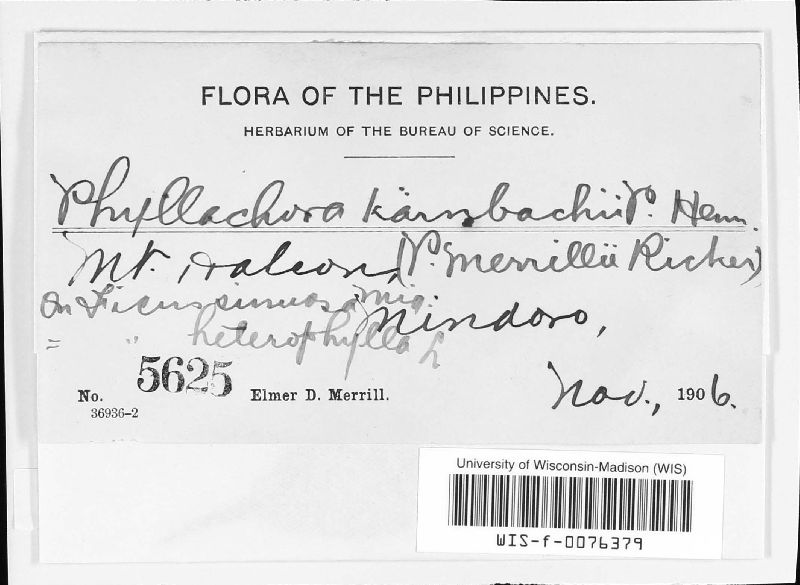 FLORA OF THE PHILIPPINES.
HERBARIUM OF THE BUREAU OF SCIENCE.
Phyllachora kärnbachii P. Henn.
Mt. Halcon, (P. Merrillii Ricker)
On Ficus sinuosa Miq.
Mindoro,
= " heterophylla L
No. 5625 Elmer D. Merrill.
36936-2
Nov., 1906.
University of Wisconsin-Madison (WIS)
WIS-f-0076379